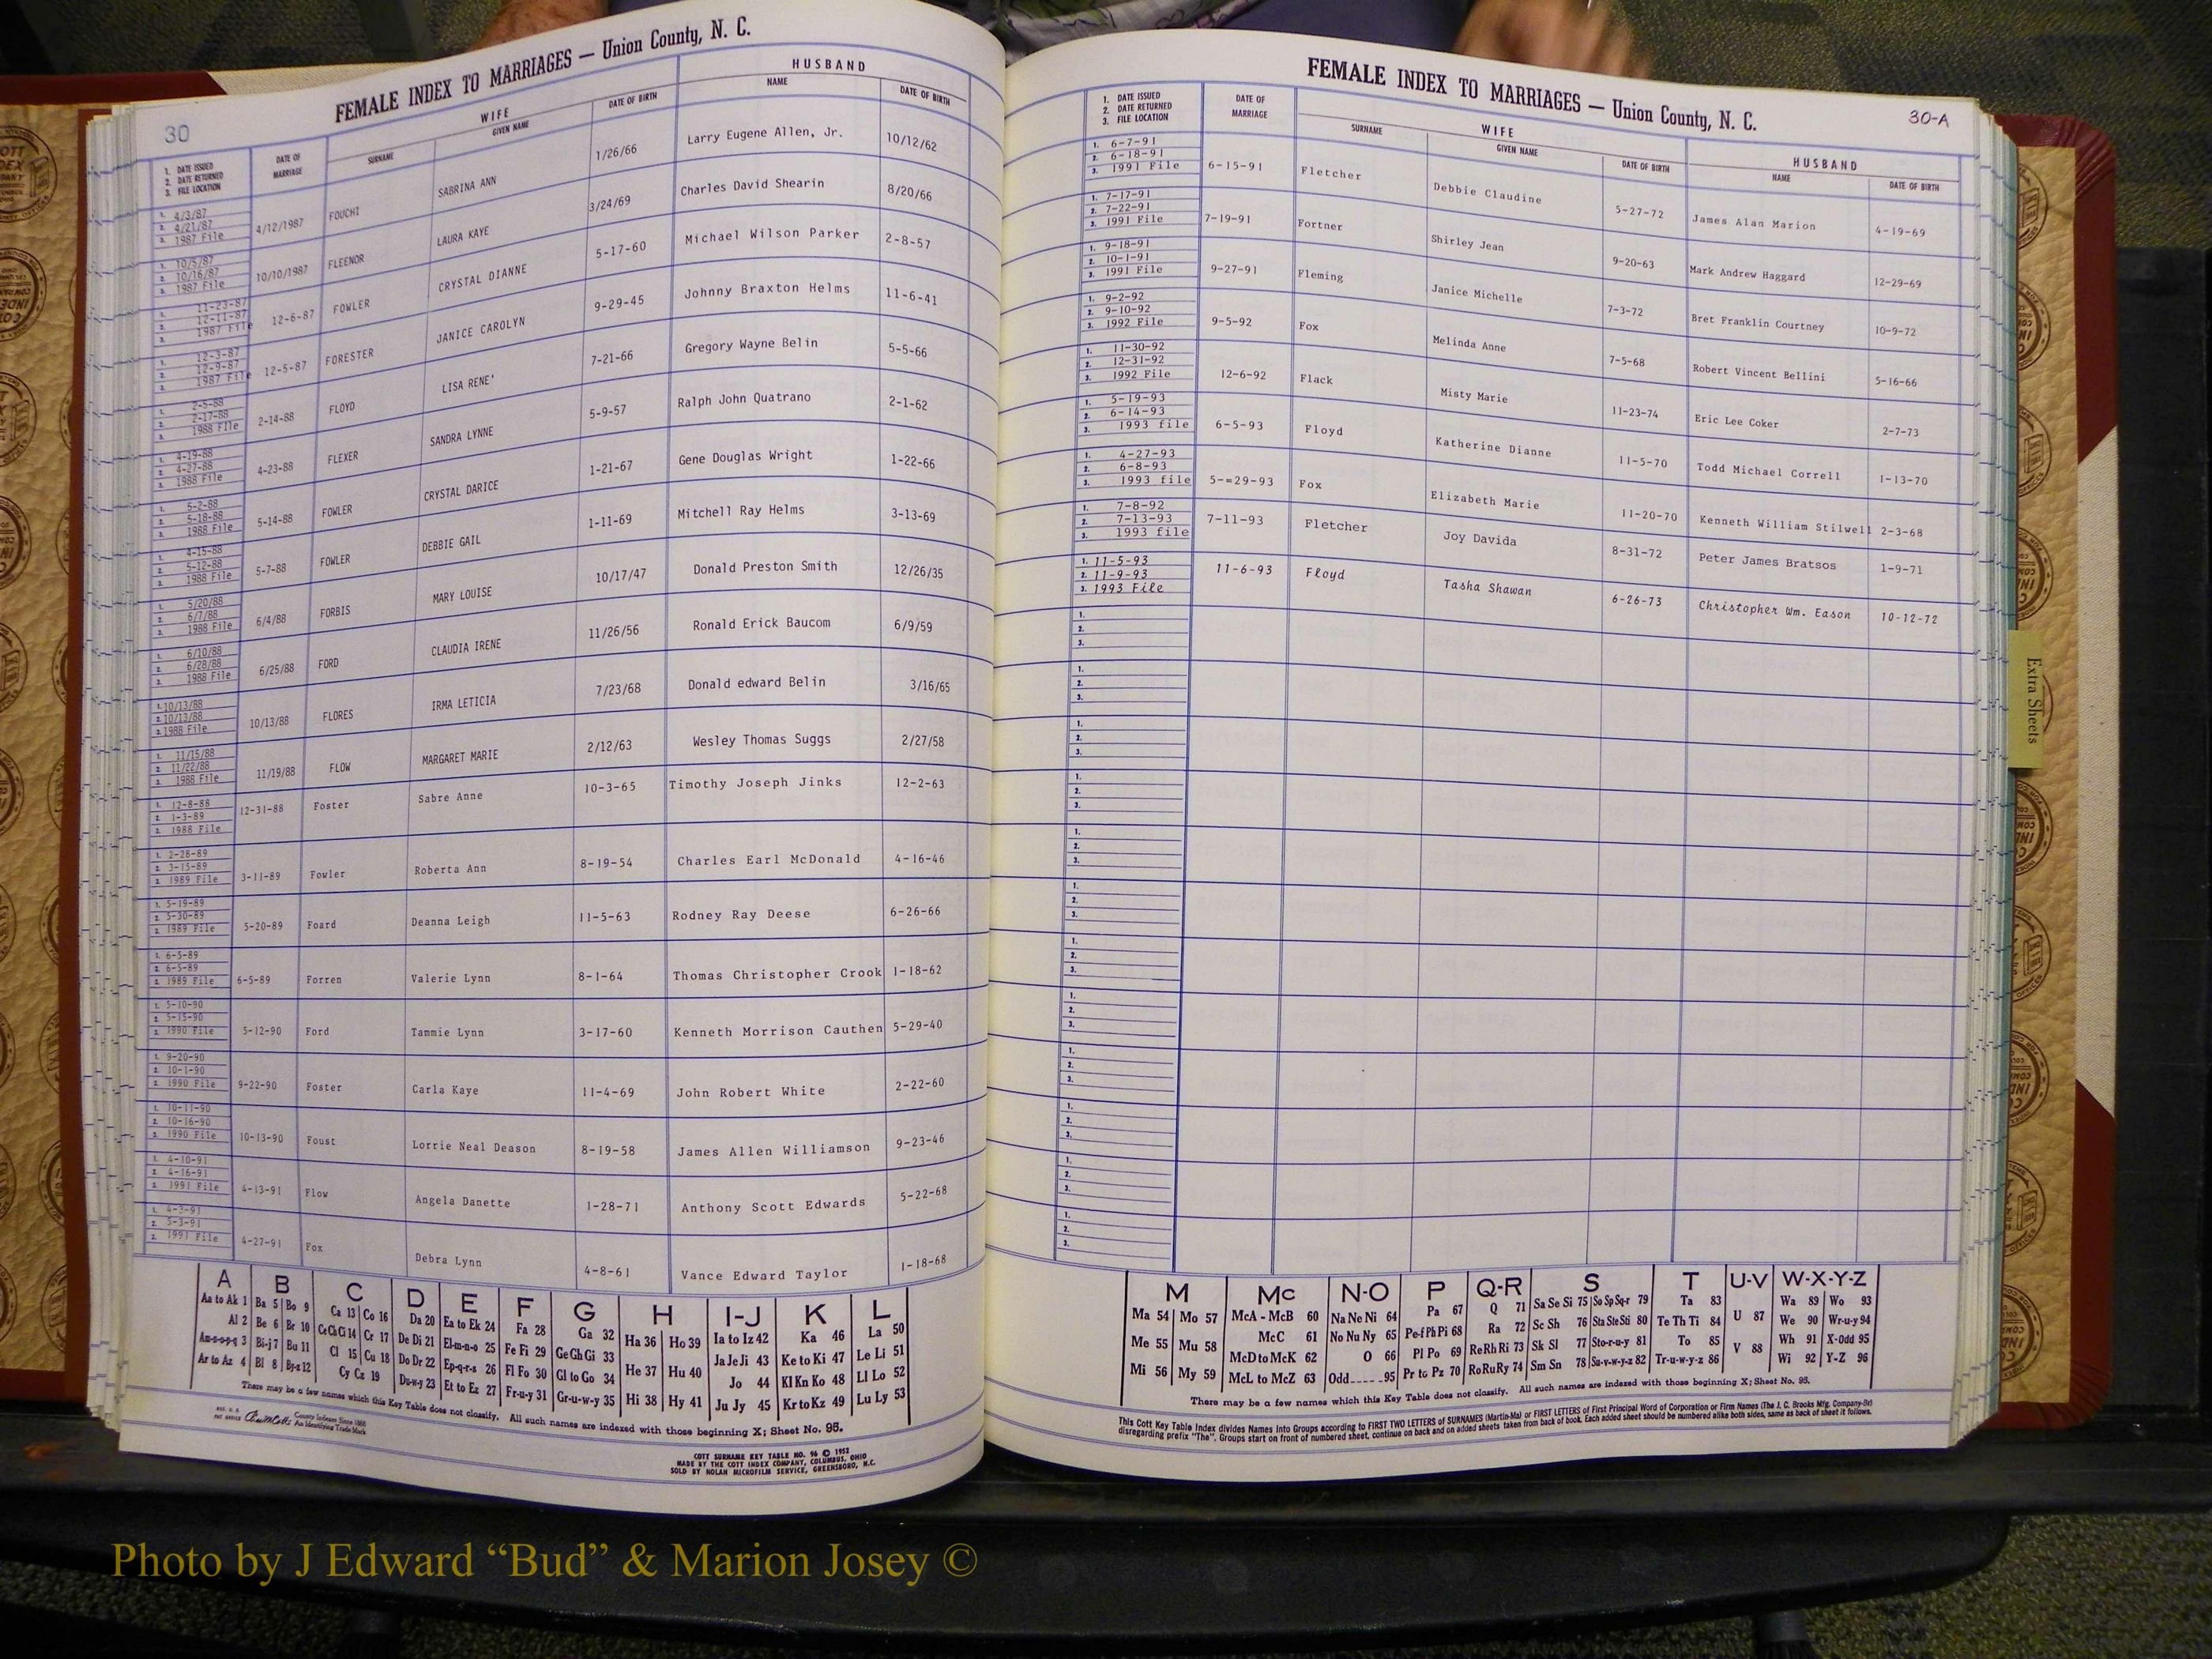 30
FEMALE INDEX TO MARRIAGES — Union County, N. C.
WIFE
HUSBAND
1. DATE ISSUED
2. DATE RETURNED
3. FILE LOCATION
DATE OF MARRIAGE
SURNAME
GIVEN NAME
DATE OF BIRTH
NAME
DATE OF BIRTH
1. 4/3/87
2. 4/21/87
3. 1987 File
4/12/1987 FOUCHI SABRINA ANN 1/26/66 Larry Eugene Allen, Jr. 10/12/62
1. 10/5/87
2. 10/16/87
3. 1987 File
10/10/1987 FLEENOR LAURA KAYE 3/24/69 Charles David Shearin 8/20/66
1. 11-23-87
2. 12-11-87
3. 1987 File
12-6-87 FOWLER CRYSTAL DIANNE 5-17-60 Michael Wilson Parker 2-8-57
1. 12-3-87
2. 12-9-87
3. 1987 File
12-5-87 FORESTER JANICE CAROLYN 9-29-45 Johnny Braxton Helms 11-6-41
1. 2-5-88
2. 2-17-88
3. 1988 File
2-14-88 FLOYD LISA RENE' 7-21-66 Gregory Wayne Belin 5-5-66
1. 4-19-88
2. 4-27-88
3. 1988 File
4-23-88 FLEXER SANDRA LYNNE 5-9-57 Ralph John Quatrano 2-1-62
1. 5-2-88
2. 5-18-88
3. 1988 File
5-14-88 FOWLER CRYSTAL DARICE 1-21-67 Gene Douglas Wright 1-22-66
1. 4-15-88
2. 5-12-88
3. 1988 File
5-7-88 FOWLER DEBBIE GAIL 1-11-69 Mitchell Ray Helms 3-13-69
1. 5/20/88
2. 6/7/88
3. 1988 File
6/4/88 FORBIS MARY LOUISE 10/17/47 Donald Preston Smith 12/26/35
1. 6/10/88
2. 6/28/88
3. 1988 File
6/25/88 FORD CLAUDIA IRENE 11/26/56 Ronald Erick Baucom 6/9/59
1. 10/13/88
2. 10/13/88
3. 1988 File
10/13/88 FLORES IRMA LETICIA 7/23/68 Donald edward Belin 3/16/65
1. 11/15/88
2. 11/22/88
3. 1988 File
11/19/88 FLOW MARGARET MARIE 2/12/63 Wesley Thomas Suggs 2/27/58
1. 12-8-88
2. 1-3-89
3. 1988 File
12-31-88 Foster Sabre Anne 10-3-65 Timothy Joseph Jinks 12-2-63
1. 2-28-89
2. 3-15-89
3. 1989 File
3-11-89 Fowler Roberta Ann 8-19-54 Charles Earl McDonald 4-16-46
1. 5-19-89
2. 5-30-89
3. 1989 File
5-20-89 Foard Deanna Leigh 11-5-63 Rodney Ray Deese 6-26-66
1. 6-5-89
2. 6-5-89
3. 1989 File
6-5-89 Forren Valerie Lynn 8-1-64 Thomas Christopher Crook 1-18-62
1. 5-10-90
2. 5-15-90
3. 1990 File
5-12-90 Ford Tammie Lynn 3-17-60 Kenneth Morrison Cauthen 5-29-40
1. 9-20-90
2. 10-1-90
3. 1990 File
9-22-90 Foster Carla Kaye 11-4-69 John Robert White 2-22-60
1. 10-11-90
2. 10-16-90
3. 1990 File
10-13-90 Foust Lorrie Neal Deason 8-19-58 James Allen Williamson 9-23-46
1. 4-10-91
2. 4-16-91
3. 1991 File
4-13-91 Flow Angela Danette 1-28-71 Anthony Scott Edwards 5-22-68
1. 4-3-91
2. 5-3-91
3. 1991 File
4-27-91 Fox Debra Lynn 4-8-61 Vance Edward Taylor 1-18-68
A B C D E F G H I-J K L
Aa to Ak 1 Ba 5 Bo 9 Ca 13 Co 16 Da 20 Ea to Ek 24 Fa 28 Ga 32 Ha 36 Ho 39 Ia to Iz 42 Ka 46 La 50
Al 2 Be 6 Br 10 Ce Ch Ci 14 Cr 17 De Di 21 El-m-n-o 25 Fe Fi 29 Ge Gh Gi 33 He 37 Hu 40 Ja Je Ji 43 Ke to Ki 47 Le Li 51
Am-n-o-p-q 3 Bi-j 7 Bu 11 Cl 15 Cu 18 Do Dr 22 Ep-q-r-s 26 Fl Fo 30 Gl to Go 34 Hi 38 Hy 41 Jo 44 Kl Kn Ko 48 Ll Lo 52
Ar to Az 4 Bl 8 By-z 12 Cy Cz 19 Du-w-y 23 Et to Ez 27 Fr-u-y 31 Gr-u-w-y 35 Ju Jy 45 Kr to Kz 49 Lu Ly 53
There may be a few names which this Key Table does not classify. All such names are indexed with those beginning X; Sheet No. 95.
County Indexes Since 1888
An Identifying Trade Mark
COTT SURNAME KEY TABLE NO. 96 © 1952
MADE BY THE COTT INDEX COMPANY, COLUMBUS, OHIO
SOLD BY NOLAN MICROFILM SERVICE, GREENSBORO, N.C.
FEMALE INDEX TO MARRIAGES — Union County, N. C.
30-A
1. DATE ISSUED
2. DATE RETURNED
3. FILE LOCATION
DATE OF MARRIAGE
WIFE
SURNAME
GIVEN NAME
DATE OF BIRTH
HUSBAND
NAME
DATE OF BIRTH
1. 6-7-91
2. 6-18-91
3. 1991 File
6-15-91 Fletcher Debbie Claudine 5-27-72 James Alan Marion 4-19-69
1. 7-17-91
2. 7-22-91
3. 1991 File
7-19-91 Fortner Shirley Jean 9-20-63 Mark Andrew Haggard 12-29-69
1. 9-18-91
2. 10-1-91
3. 1991 File
9-27-91 Fleming Janice Michelle 7-3-72 Bret Franklin Courtney 10-9-72
1. 9-2-92
2. 9-10-92
3. 1992 File
9-5-92 Fox Melinda Anne 7-5-68 Robert Vincent Bellini 5-16-66
1. 11-30-92
2. 12-31-92
3. 1992 File
12-6-92 Flack Misty Marie 11-23-74 Eric Lee Coker 2-7-73
1. 5-19-93
2. 6-14-93
3. 1993 file
6-5-93 Floyd Katherine Dianne 11-5-70 Todd Michael Correll 1-13-70
1. 4-27-93
2. 6-8-93
3. 1993 file
5-=29-93 Fox Elizabeth Marie 11-20-70 Kenneth William Stilwell 2-3-68
1. 7-8-92
2. 7-13-93
3. 1993 file
7-11-93 Fletcher Joy Davida 8-31-72 Peter James Bratsos 1-9-71
1. 11-5-93
2. 11-9-93
3. 1993 File
11-6-93 Floyd Tasha Shawan 6-26-73 Christopher Wm. Eason 10-12-72
1.
2.
3.
1.
2.
3.
1.
2.
3.
1.
2.
3.
1.
2.
3.
1.
2.
3.
1.
2.
3.
1.
2.
3.
1.
2.
3.
1.
2.
3.
1.
2.
3.
1.
2.
3.
Extra Sheets
M Mc N-O P Q-R S T U-V W-X-Y-Z
Ma 54 Mo 57 McA - McB 60 Na Ne Ni 64 Pa 67 Q 71 Sa Se Si 75 So Sp Sq-r 79 Ta 83 U 87 Wa 89 Wo 93
Me 55 Mu 58 McC 61 No Nu Ny 65 Pe-f Ph Pi 68 Ra 72 Sc Sh 76 Sta Ste Sti 80 Te Th Ti 84 V 88 We 90 Wr-u-y 94
Mi 56 My 59 McD to McK 62 O 66 Pl Po 69 Re Rh Ri 73 Sk Sl 77 Sto-r-u-y 81 To 85 Wh 91 X-Odd 95
McL to McZ 63 Odd 95 Pr to Pz 70 Ro Ru Ry 74 Sm Sn 78 Su-v-w-y-z 82 Tr-u-w-y-z 86 Wi 92 Y-Z 96
There may be a few names which this Key Table does not classify. All such names are indexed with those beginning X; Sheet No. 95.
This Cott Key Table Index divides Names into Groups according to FIRST TWO LETTERS of SURNAMES (Martin-Ma) or FIRST LETTERS of First Principal Word of Corporation or Firm Names (The J. C. Brooks Mfg. Company-Br)
disregarding prefix "The". Groups start on front of numbered sheet, continue on back and on added sheets taken from back of book. Each added sheet should be numbered alike both sides, same as back of sheet it follows.
Photo by J Edward “Bud” & Marion Josey ©